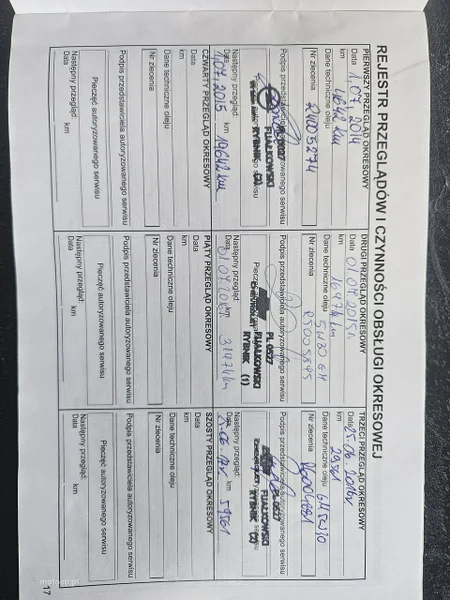 REJESTR PRZEGLĄDÓW I CZYNNOŚCI OBSŁUGI OKRESOWEJ
PIERWSZY PRZEGLĄD OKRESOWY
Data 1.07.2014
km 4642 km
Dane techniczne oleju
Nr zlecenia
Podpis przedstawiciela autoryzowanego serwisu
PL 0527
FIJAŁKOWSKI
RYBNIK (2)
Następny przegląd:
Data 1.07.2015 km 19642 km
DRUGI PRZEGLĄD OKRESOWY
Data
km
Dane techniczne oleju 5W30 GM
Nr zlecenia
Podpis przedstawiciela autoryzowanego serwisu
PL 0527
FIJAŁKOWSKI
RYBNIK (1)
Następny przegląd:
Data km 31474 km
TRZECI PRZEGLĄD OKRESOWY
Data 25.06.2016r
km
Dane techniczne oleju GM 5W30
Nr zlecenia
Podpis przedstawiciela autoryzowanego serwisu
PL 0527
FIJAŁKOWSKI
RYBNIK (2)
Następny przegląd:
Data km
CZWARTY PRZEGLĄD OKRESOWY
Data
km
Dane techniczne oleju
Nr zlecenia
Podpis przedstawiciela autoryzowanego serwisu
Pieczęć autoryzowanego serwisu
Następny przegląd:
Data km
PIĄTY PRZEGLĄD OKRESOWY
Data
km
Dane techniczne oleju
Nr zlecenia
Podpis przedstawiciela autoryzowanego serwisu
Pieczęć autoryzowanego serwisu
Następny przegląd:
Data km
SZÓSTY PRZEGLĄD OKRESOWY
Data
km
Dane techniczne oleju
Nr zlecenia
Podpis przedstawiciela autoryzowanego serwisu
Pieczęć autoryzowanego serwisu
Następny przegląd:
Data km
17